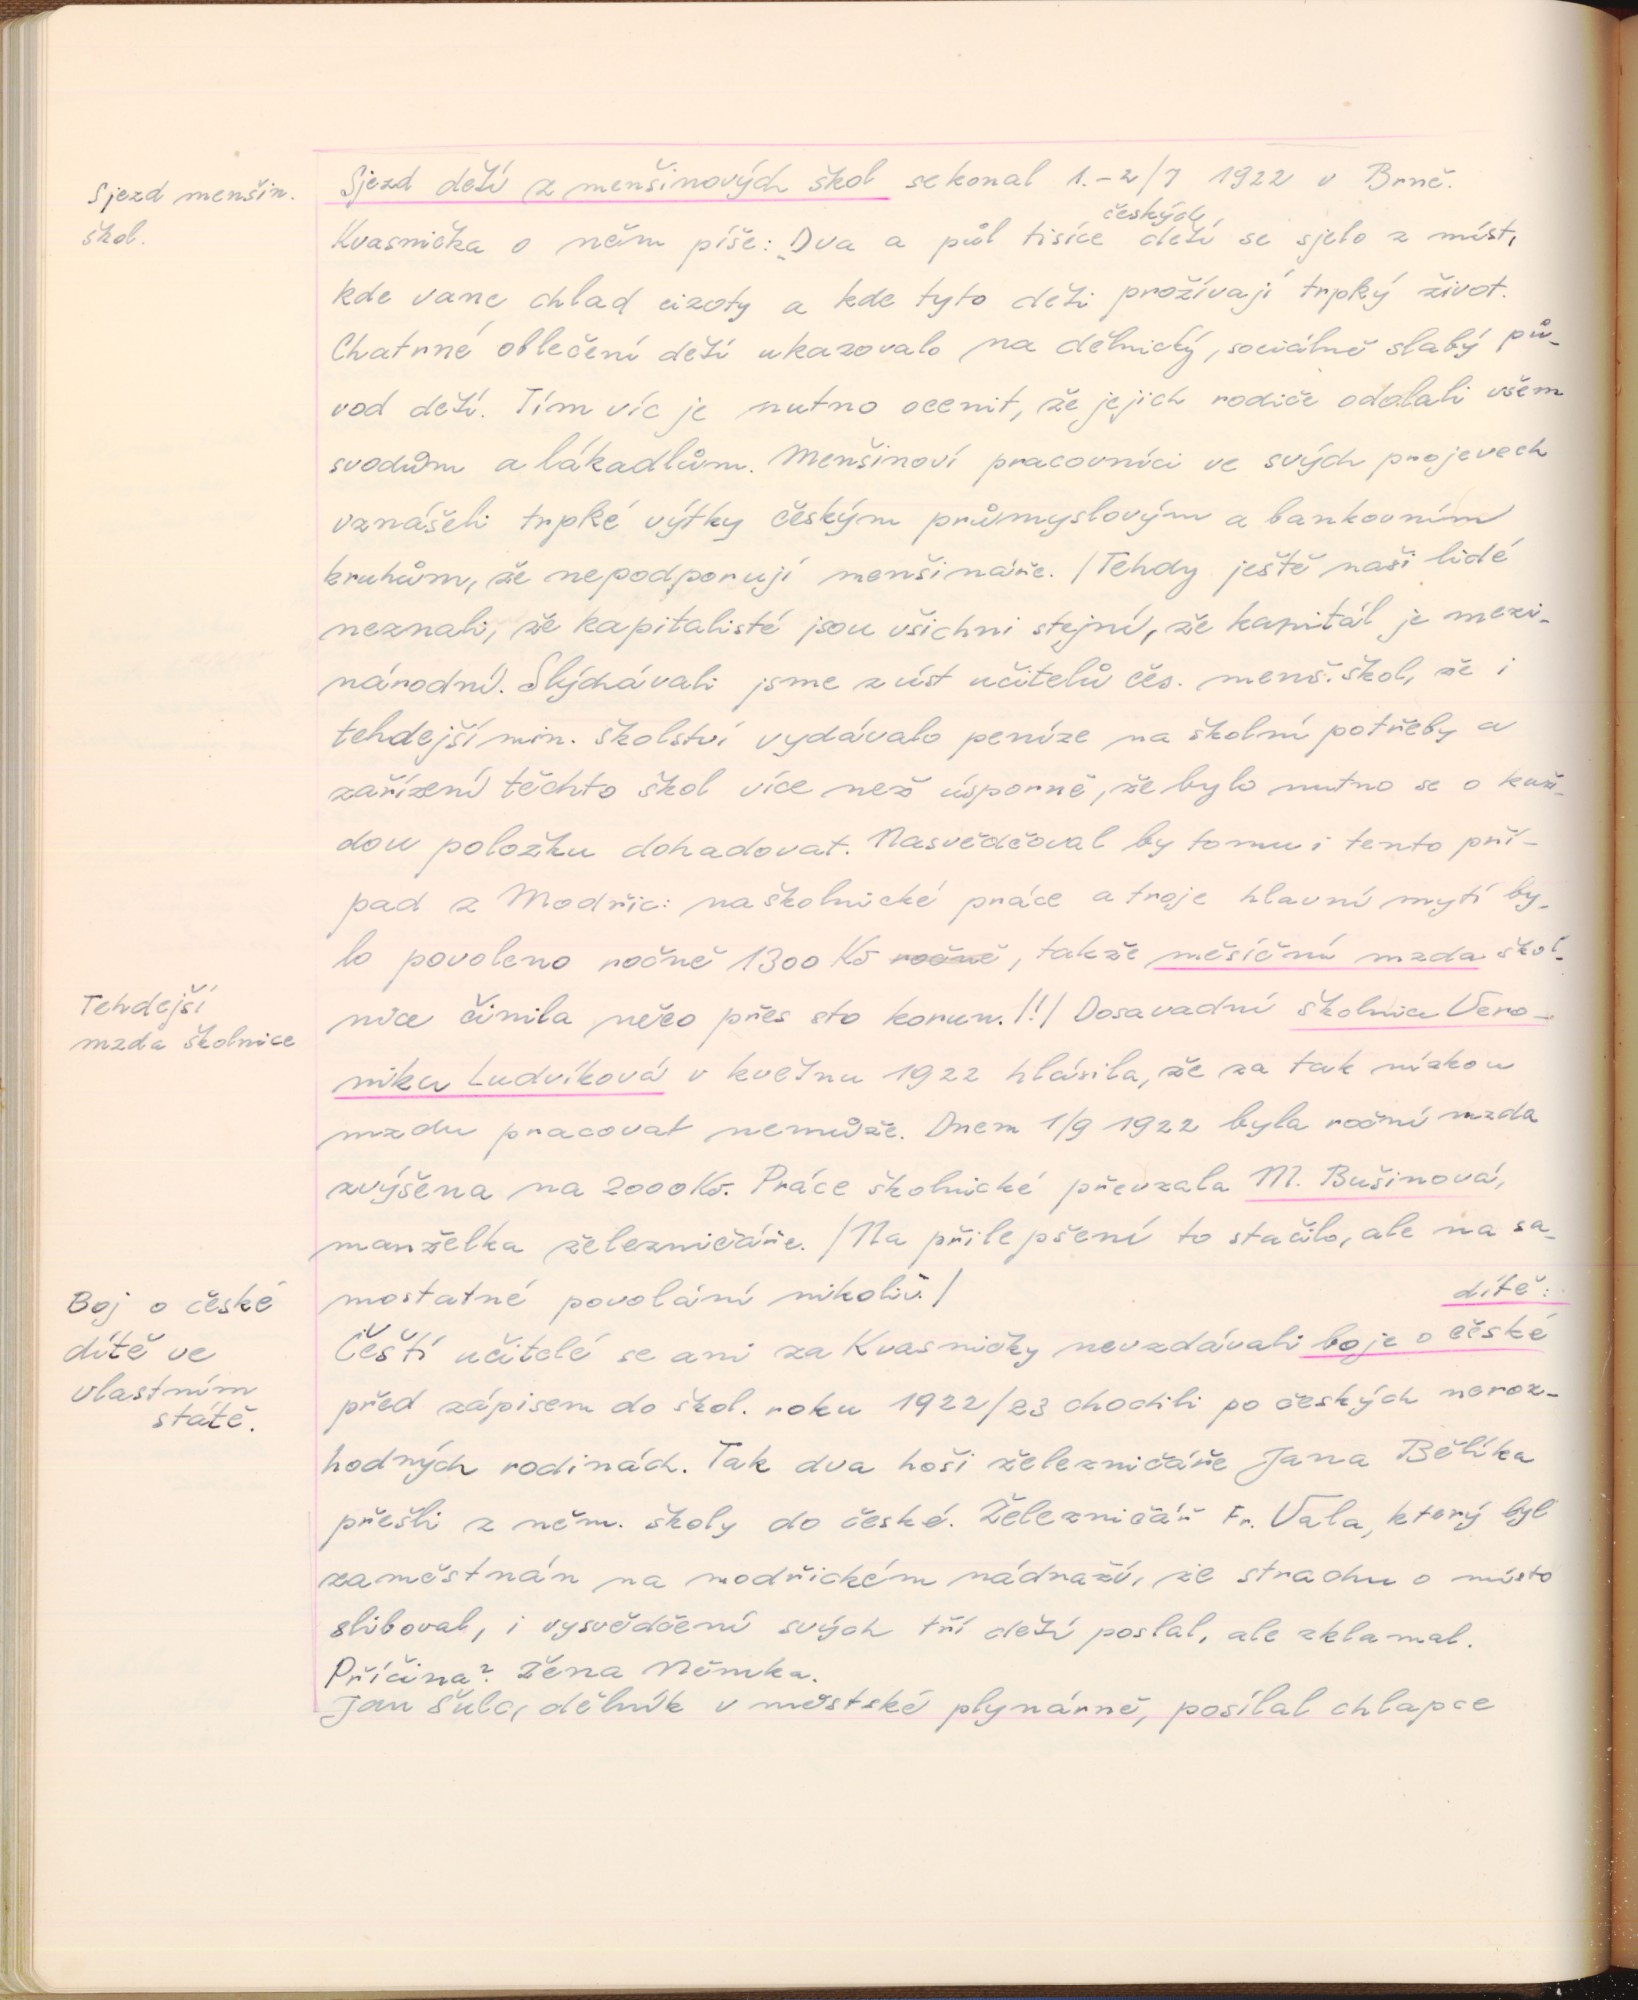 Sjezd menšin.
škol.
Sjezd dětí z menšinových škol se konal 1.-2/7 1922 v Brně.
českých
Kvasnička o něm píše: „Dva a půl tisíce dětí se sjelo z míst,
kde vane chlad cizoty a kde tyto děti prožívají trpký život.
Chatrné oblečení dětí ukazovalo na dělnický, sociálně slabý pů-
vod dětí. Tím víc je nutno ocenit, že jejich rodiče odolali všem
svodům a lákadlům. Menšinoví pracovníci ve svých projevech
vznášeli trpké výtky českým průmyslovým a bankovním
kruhům, že nepodporují menšináře. /Tehdy ještě naši lidé
neznali, že kapitalisté jsou všichni stejní, že kapitál je mezi-
národní. Slýchávali jsme z úst učitelů čes. menš. škol, že i
tehdejší min. školství vydávalo peníze na školní potřeby a
zařízení těchto škol více než úsporně, že bylo nutno se o kaž-
dou položku dohadovat. Nasvědčoval by tomu i tento pří-
pad z Modřic: na školnické práce a troje hlavní mytí by-
lo povoleno ročně 1300 Kč ročně, takže měsíční mzda škol-
Tehdejší
mzda školnice
nice činila něco přes sto korun. /!/ Dosavadní školnice Vero-
nika Ludvíková v květnu 1922 hlásila, že za tak nízkou
mzdu pracovat nemůže. Dnem 1/9 1922 byla roční mzda
zvýšena na 2000 Kč. Práce školnické převzala M. Bušinová,
manželka železničáře. /Na přilepšení to stačilo, ale na sa-
mostatné povolání nikoliv./
Boj o české
dítě ve
vlastním
státě.
dítě:
Čeští učitelé se ani za Kvasničky nevzdávali boje o české
před zápisem do škol. roku 1922/23 chodili po českých neroz-
hodných rodinách. Tak dva hoši železničáře Jana Bělíka
přešli z něm. školy do české. Železničář Fr. Vala, který byl
zaměstnán na modřickém nádraží, ze strachu o místo
sliboval, i vysvědčení svých tří dětí poslal, ale zklamal.
Příčina? Žena Němka.
Jan Šulc, dělník v městské plynárně, posílal chlapce